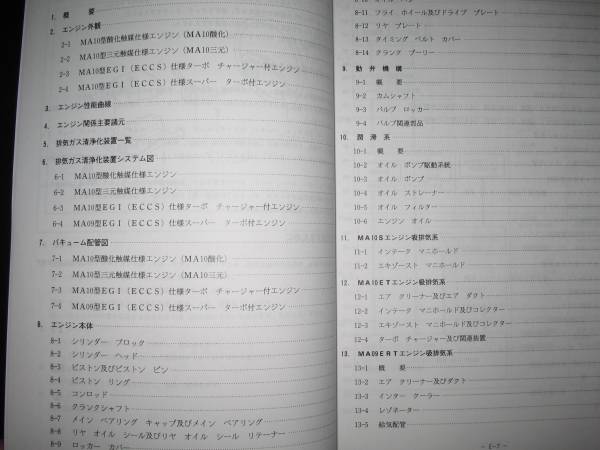 1. 概　要
2. エンジン外観
2-1 MA10型酸化触媒仕様エンジン（MA10酸化）
2-2 MA10型三元触媒仕様エンジン（MA10三元）
2-3 MA10型EGI（ECCS）仕様ターボ チャージャー付エンジン
2-4 MA09型EGI（ECCS）仕様スーパー ターボ付エンジン
3. エンジン性能曲線
4. エンジン関係主要諸元
5. 排気ガス清浄化装置一覧
6. 排気ガス清浄化装置システム図
6-1 MA10型酸化触媒仕様エンジン
6-2 MA10型三元触媒仕様エンジン
6-3 MA10型EGI（ECCS）仕様ターボ チャージャー付エンジン
6-4 MA09型EGI（ECCS）仕様スーパー ターボ付エンジン
7. バキューム配管図
7-1 MA10型酸化触媒仕様エンジン（MA10酸化）
7-2 MA10型三元触媒仕様エンジン（MA10三元）
7-3 MA10型EGI（ECCS）仕様ターボ チャージャー付エンジン
7-4 MA09型EGI（ECCS）仕様スーパー ターボ付エンジン
8. エンジン本体
8-1 シリンダー ブロック
8-2 シリンダー ヘッド
8-3 ピストン及びピストン ピン
8-4 ピストン リング
8-5 コンロッド
8-6 クランクシャフト
8-7 メイン ベアリング キャップ及びメイン ベアリング
8-8 リヤ オイル シール及びリヤ オイル シール リテーナー
8-9 ロッカー カバー
8-11 フライ ホイール及びドライブ プレート
8-12 リヤ プレート
8-13 タイミング ベルト カバー
8-14 クランク プーリー
9. 動弁機構
9-1 概　要
9-2 カムシャフト
9-3 バルブ ロッカー
9-4 バルブ関連部品
10. 潤滑系
10-1 概　要
10-2 オイル ポンプ駆動系統
10-3 オイル ポンプ
10-4 オイル ストレーナー
10-5 オイル フィルター
10-6 エンジン オイル
11. MA10Sエンジン吸排気系
11-1 インテーク マニホールド
11-2 エキゾースト マニホールド
12. MA10ETエンジン吸排気系
12-1 エア クリーナー及びエア ダクト
12-2 インテーク マニホールド及びコレクター
12-3 エキゾースト マニホールド及びコレクター
12-4 ターボ チャージャー及び関連装置
13. MA09ERTエンジン吸排気系
13-1 概　要
13-2 エア クリーナー及びダクト
13-3 インター クーラー
13-4 レゾネーター
13-5 給気配管